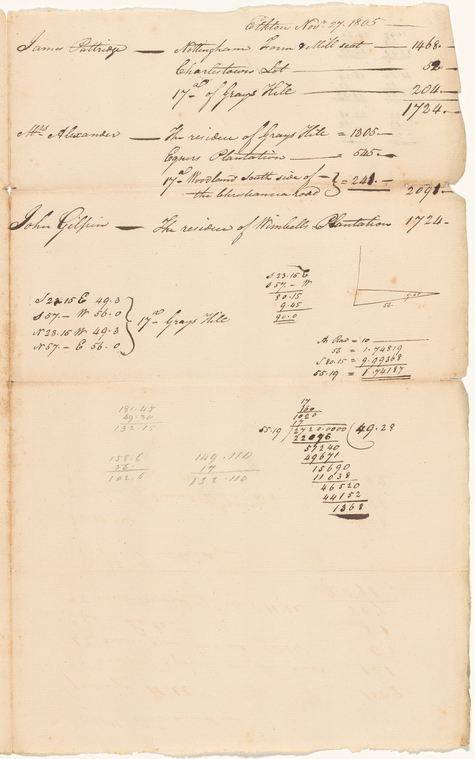 Elkton Novr 27. 1805
James Partridge — Nottingham Farm & Mill seat — 1468.
Charlestown Lot — 52.
17 as of Grays Hill — 204.
1724.
Mrs Alexander — The residue of Grays Hill = 1305
Egnors Plantation — 545
17 a Woodland South side of the Christianna road } = 241. 2091.
John Gilpin — The residue of Wimbells Plantation 1724
S 23.15 E
S 57. W
80.15
9.45
90.0
S 23.15 E 49.3
S 57. W 56.0
N 23.15 W 49.3
N 57. E 56.0
} 17 as Grays Hill
56
As Rad = 10
56 = 1.74819
S 80.15 = 9.99368
55.19 = 1.74187
181.45
49.30
132.15
158.6
56.
102.6
149.110
17
832.110
17
160
1020
17
55.19 ) 2720.0000 ( 49.28
22076
51240
49671
15690
11038
46520
44152
1368